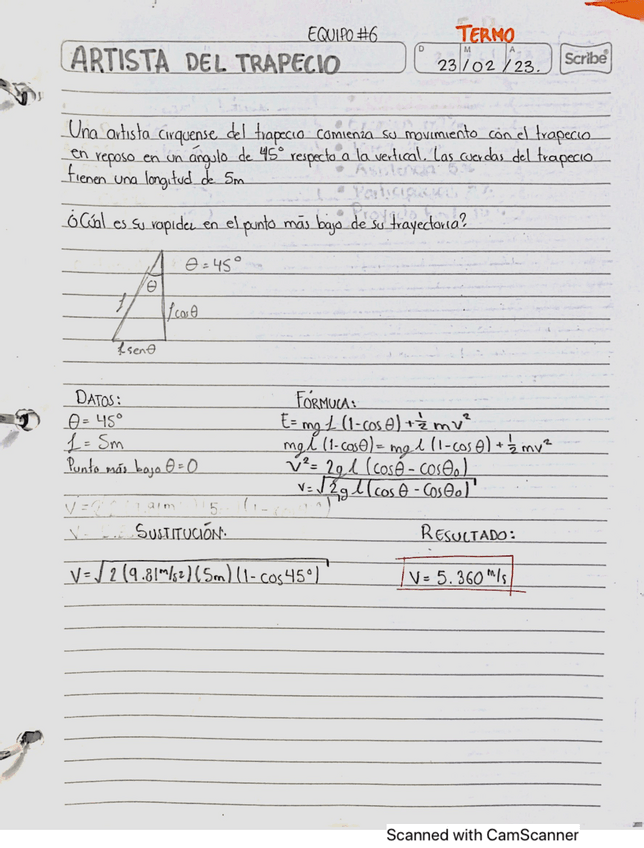 EQUIPO #6
TERMO
ARTISTA DEL TRAPECIO
D M A
23/02/23.
Scribe
Una artista cirquense del trapecio comienza su movimiento con el trapecio
en reposo en un ángulo de 45° respecto a la vertical. Las cuerdas del trapecio
tienen una longitud de 5m
¿Cúal es su rapidez en el punto más bajo de su trayectoria?
θ = 45°
θ
l
l cosθ
l senθ
DATOS:
θ = 45°
l = 5m
Punto más bajo θ=0
FÓRMULA:
E= mg l (1-cos θ) + ½ mv²
mg l (1-cosθ)= mg l (1-cos θ) + ½ mv²
v²= 2g l (cosθ - cosθ₀)
v=√2g l (cos θ - cosθ₀)
SUSTITUCIÓN.
V=√2 (9.81m/s²)(5m)(1- cos45°)
RESULTADO:
V= 5.360 m/s
Scanned with CamScanner